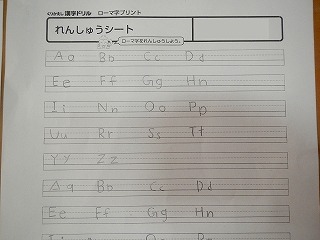 くりかえし漢字ドリル ローマ字プリント
れんしゅうシート
ローマ字をれんしゅうしよう。
Aa Bb Cc Dd
Ee Ff Gg Hn
Ii Nn Oo Pp
Uu Rr Ss Tt
Yy Zz
Aa Bb Cc Dd
Ee Ff Gg Hn